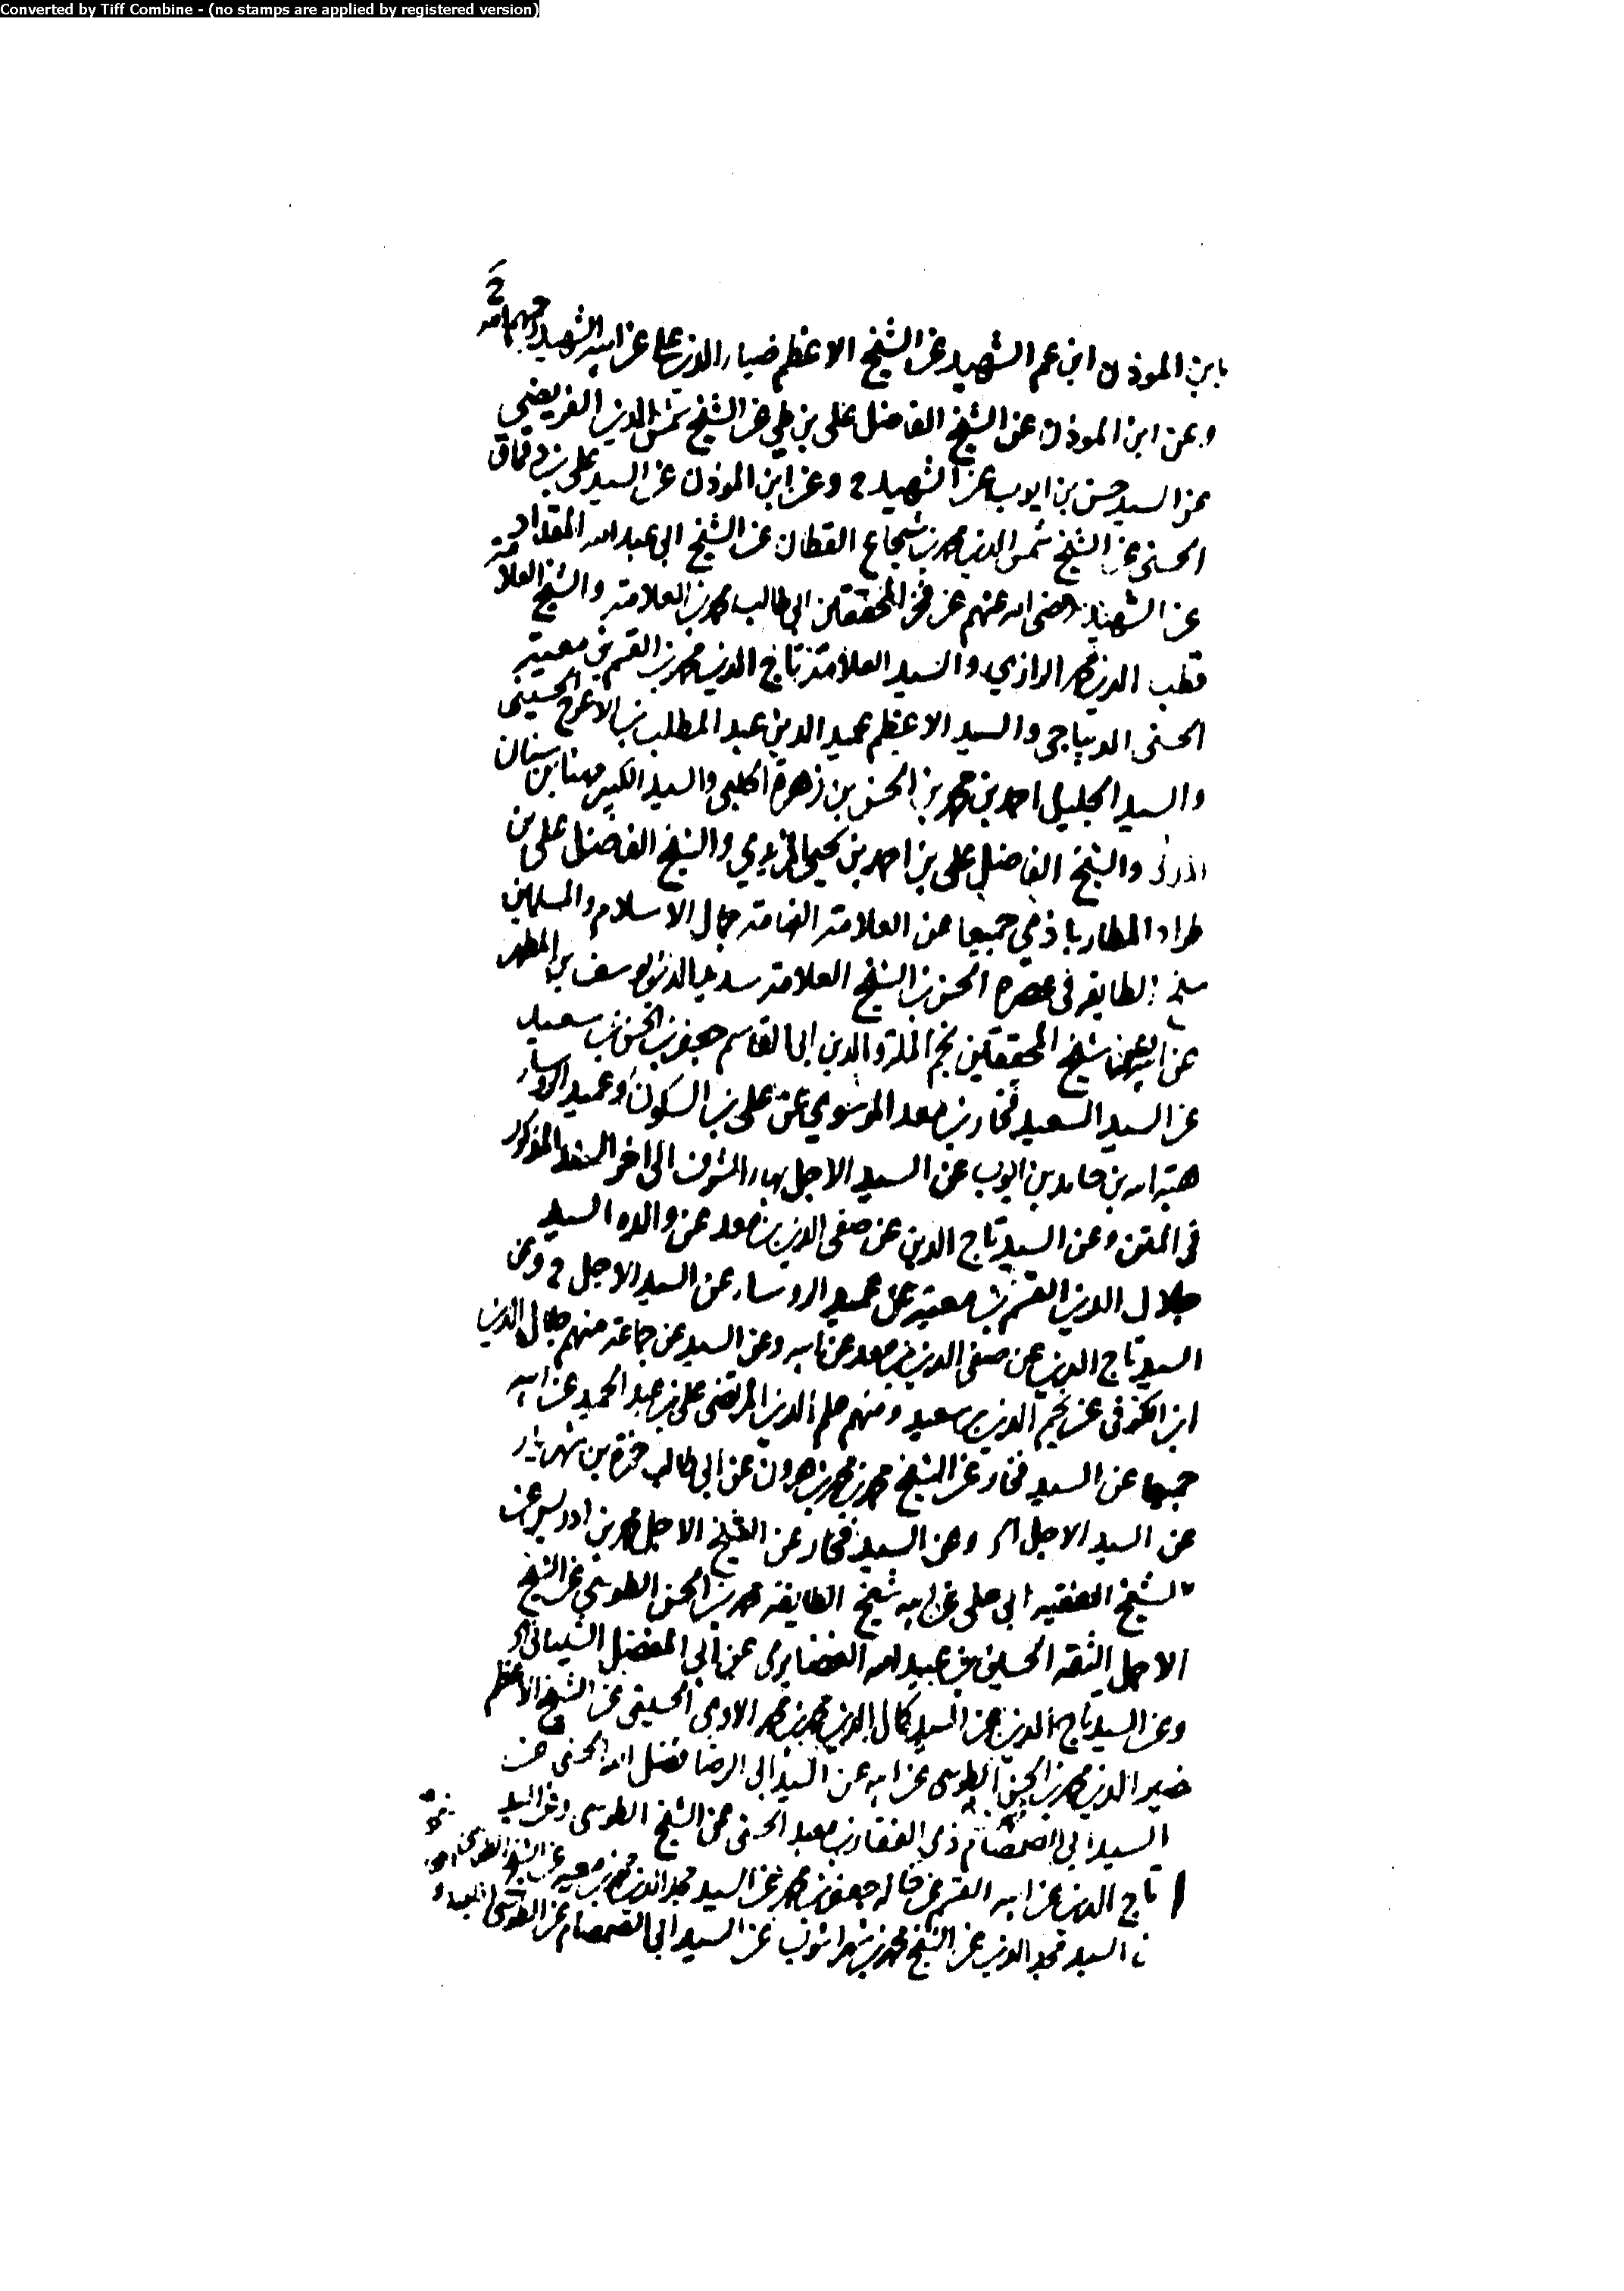 Converted by Tiff Combine - (no stamps are applied by registered version)
بابن الموذن ابن عم الشهيد عن الشيخ الاعظم ضياء الدين على عن ابيه الشهيد رحمهم الله
وعن ابن الموذن عن الشيخ الفاضل على بن طى عن الشيخ شمس الدين العريضى
عن السيد حسن بن ايوب عن الشهيد ح وعن ابن الموذن عن السيد على بن دقماق
الحسنى عن الشيخ شمس الدين محمد بن شجاع القطان عن الشيخ ابى عبد الله المقداد
عن الشهيد رضى الله عنهم عن فخر المحققين ابى طالب محمد بن العلامة والشيخ العلامة
قطب الدين محمد الرازي والسيد العلامة تاج الدين محمد بن القسم بن معية
الحسنى الديباجى والسيد الاعظم عميد الدين عبد المطلب بن الاعرج الحسينى
والسيد الجليل احمد بن محمد بن الحسن بن زهرة الحلبى والسيد الكبير مهنا بن سنان
المدنى والشيخ الفاضل على بن احمد بن يحيى المزيدي والشيخ الفاضل على بن
طراد المطارباذي جميعا عن العلامة الفهامة جمال الاسلام والمسلمين
شيخ الطايفة فى عصره الحسن بن الشيخ العلامة سديد الدين يوسف بن المطهر
عن شيخ المحققين نجم الملة والدين ابى القاسم جعفر بن الحسن بن سعيد
عن السيد السعيد فخار بن معد الموسوي عن على بن السكون وعميد الروساء
هبة الله بن حامد بن ايوب عن السيد الاجل بهاء الشرف الى اخر السند المذكور
فى المتن وعن السيد تاج الدين عن صفى الدين بن معد عن والده السيد
جلال الدين القسم بن معية عن عميد الروساء عن السيد الاجل ح وعن
السيد تاج الدين عن صفى الدين بن معد عن ابيه وعن السيد عن جماعة منهم جلال الدين
ابن الكوفى عن نجم الدين بن سعيد ومنهم علم الدين المرتضى على بن عبد الحميد عن ابيه
جميعا عن السيد فخار عن الشيخ محمد بن محمد بن هرون عن ابى طالب حمزة بن شهريار
عن السيد الاجل وعن السيد فخار عن الشيخ الاجل محمد بن ادريس عن
الشيخ الفقيه ابى على عن ابيه شيخ الطايفة محمد بن الحسن الطوسي عن الشيخ
الاجل الثقه الحسين بن عبيد الله الغضايرى عن ابى المفضل الشيبانى
وعن السيد تاج الدين عن السيد كمال الدين محمد بن محمد الاوى الحسينى عن الشيخ الاعظم
نصير الدين محمد بن الحسن الطوسى عن ابيه عن السيد ابى الرضا فضل الله الحسنى عن
السيد ابى الصمصام ذي الفقار بن معبد الحسنى عن الشيخ الطوسى وعن السيد
تاج الدين عن ابيه القسم عن خاله جعفر بن محمد عن السيد مجد الدين محمد بن معية عن الشيخ الطوسى
السيد مجد الدين عن الشيخ محمد بن شهراشوب عن السيد ابى الصمصام عن الطوسى